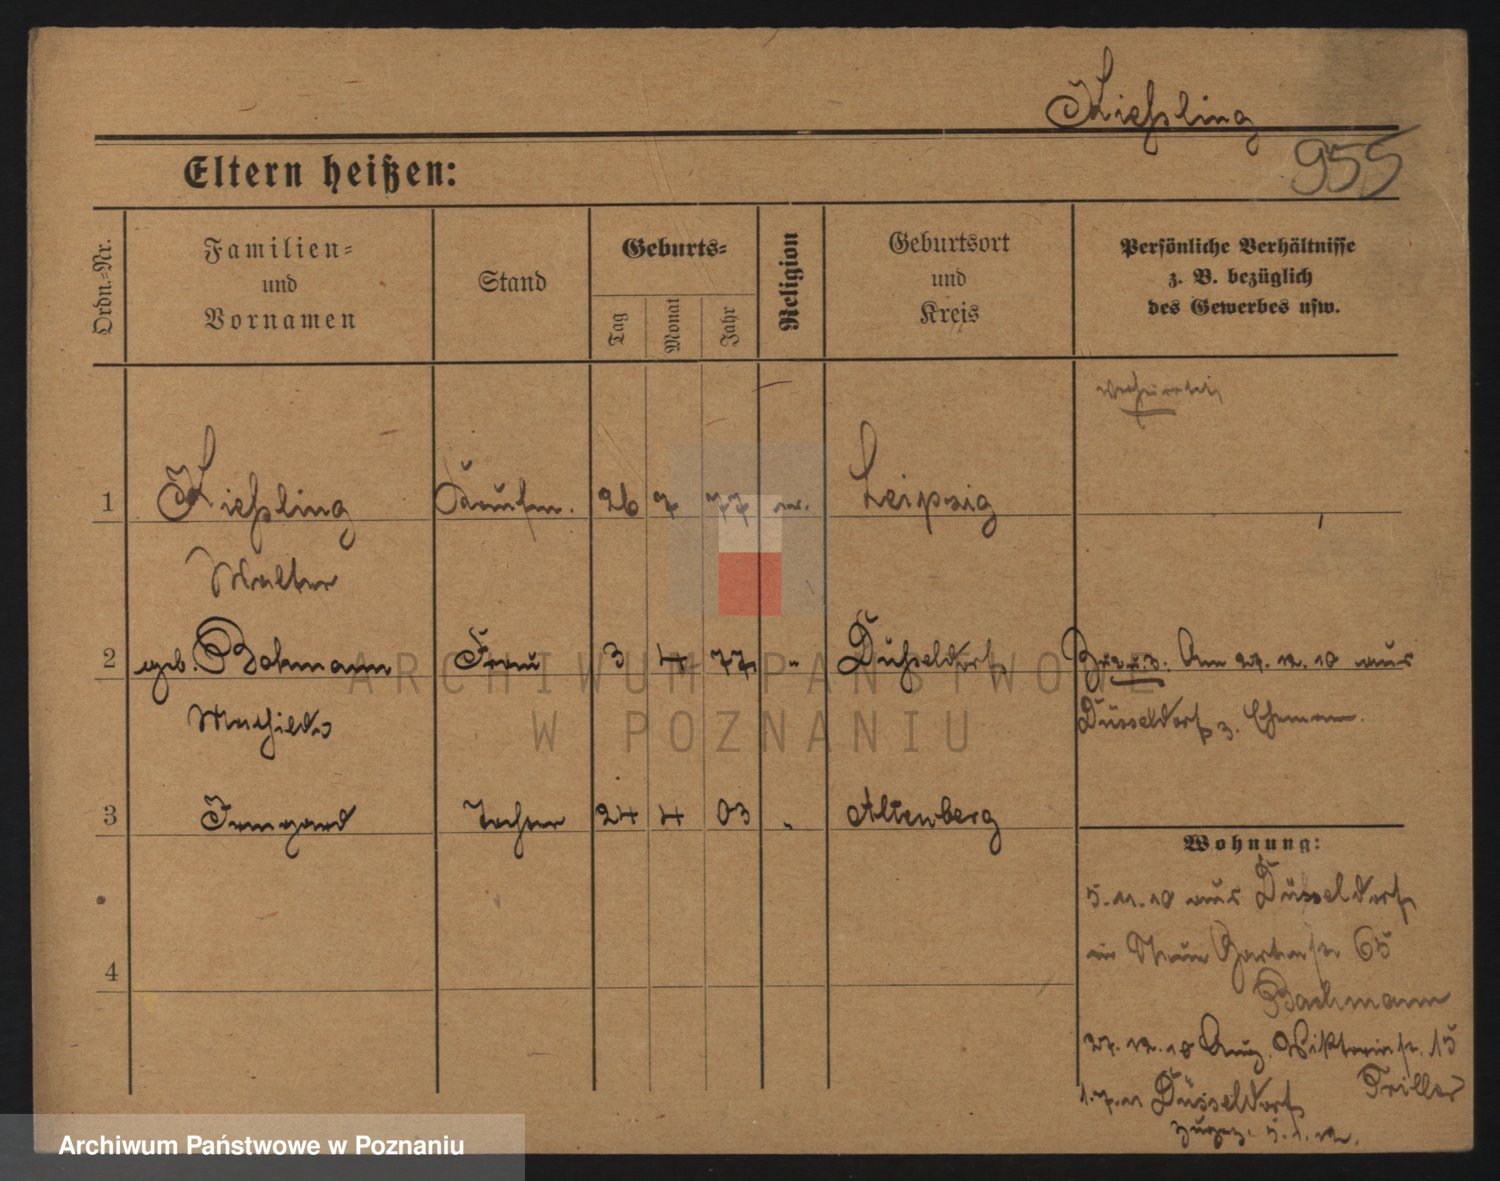 Kießling
955
Eltern heißen:
Ordn.-Nr.
Familien-
und
Vornamen
Stand
Geburts-
Tag
Monat
Jahr
Religion
Geburtsort
und
Kreis
Persönliche Verhältnisse
z. B. bezüglich
des Gewerbes usw.
1 Kießling Kaufm. 26 7 77 Leipzig
Walter
2 geb. Bohmann Frau 3 4 77 " Düsseldorf 27. 12. 10 aus
Mathilde Düsseldorf z. Ehemann.
3 Irmgard Tochter 24 4 03 " Altenberg
Wohnung:
5. 11. 10 aus Düsseldorf
in Gartenstr 65
Bachmann
4
27. 12. 10 Aug. Viktoriastr. 15
Triller
1. 7. 11 Düsseldorf
5. 1. 12.
ARCHIWUM PAŃSTWOWE
W POZNANIU
Archiwum Państwowe w Poznaniu